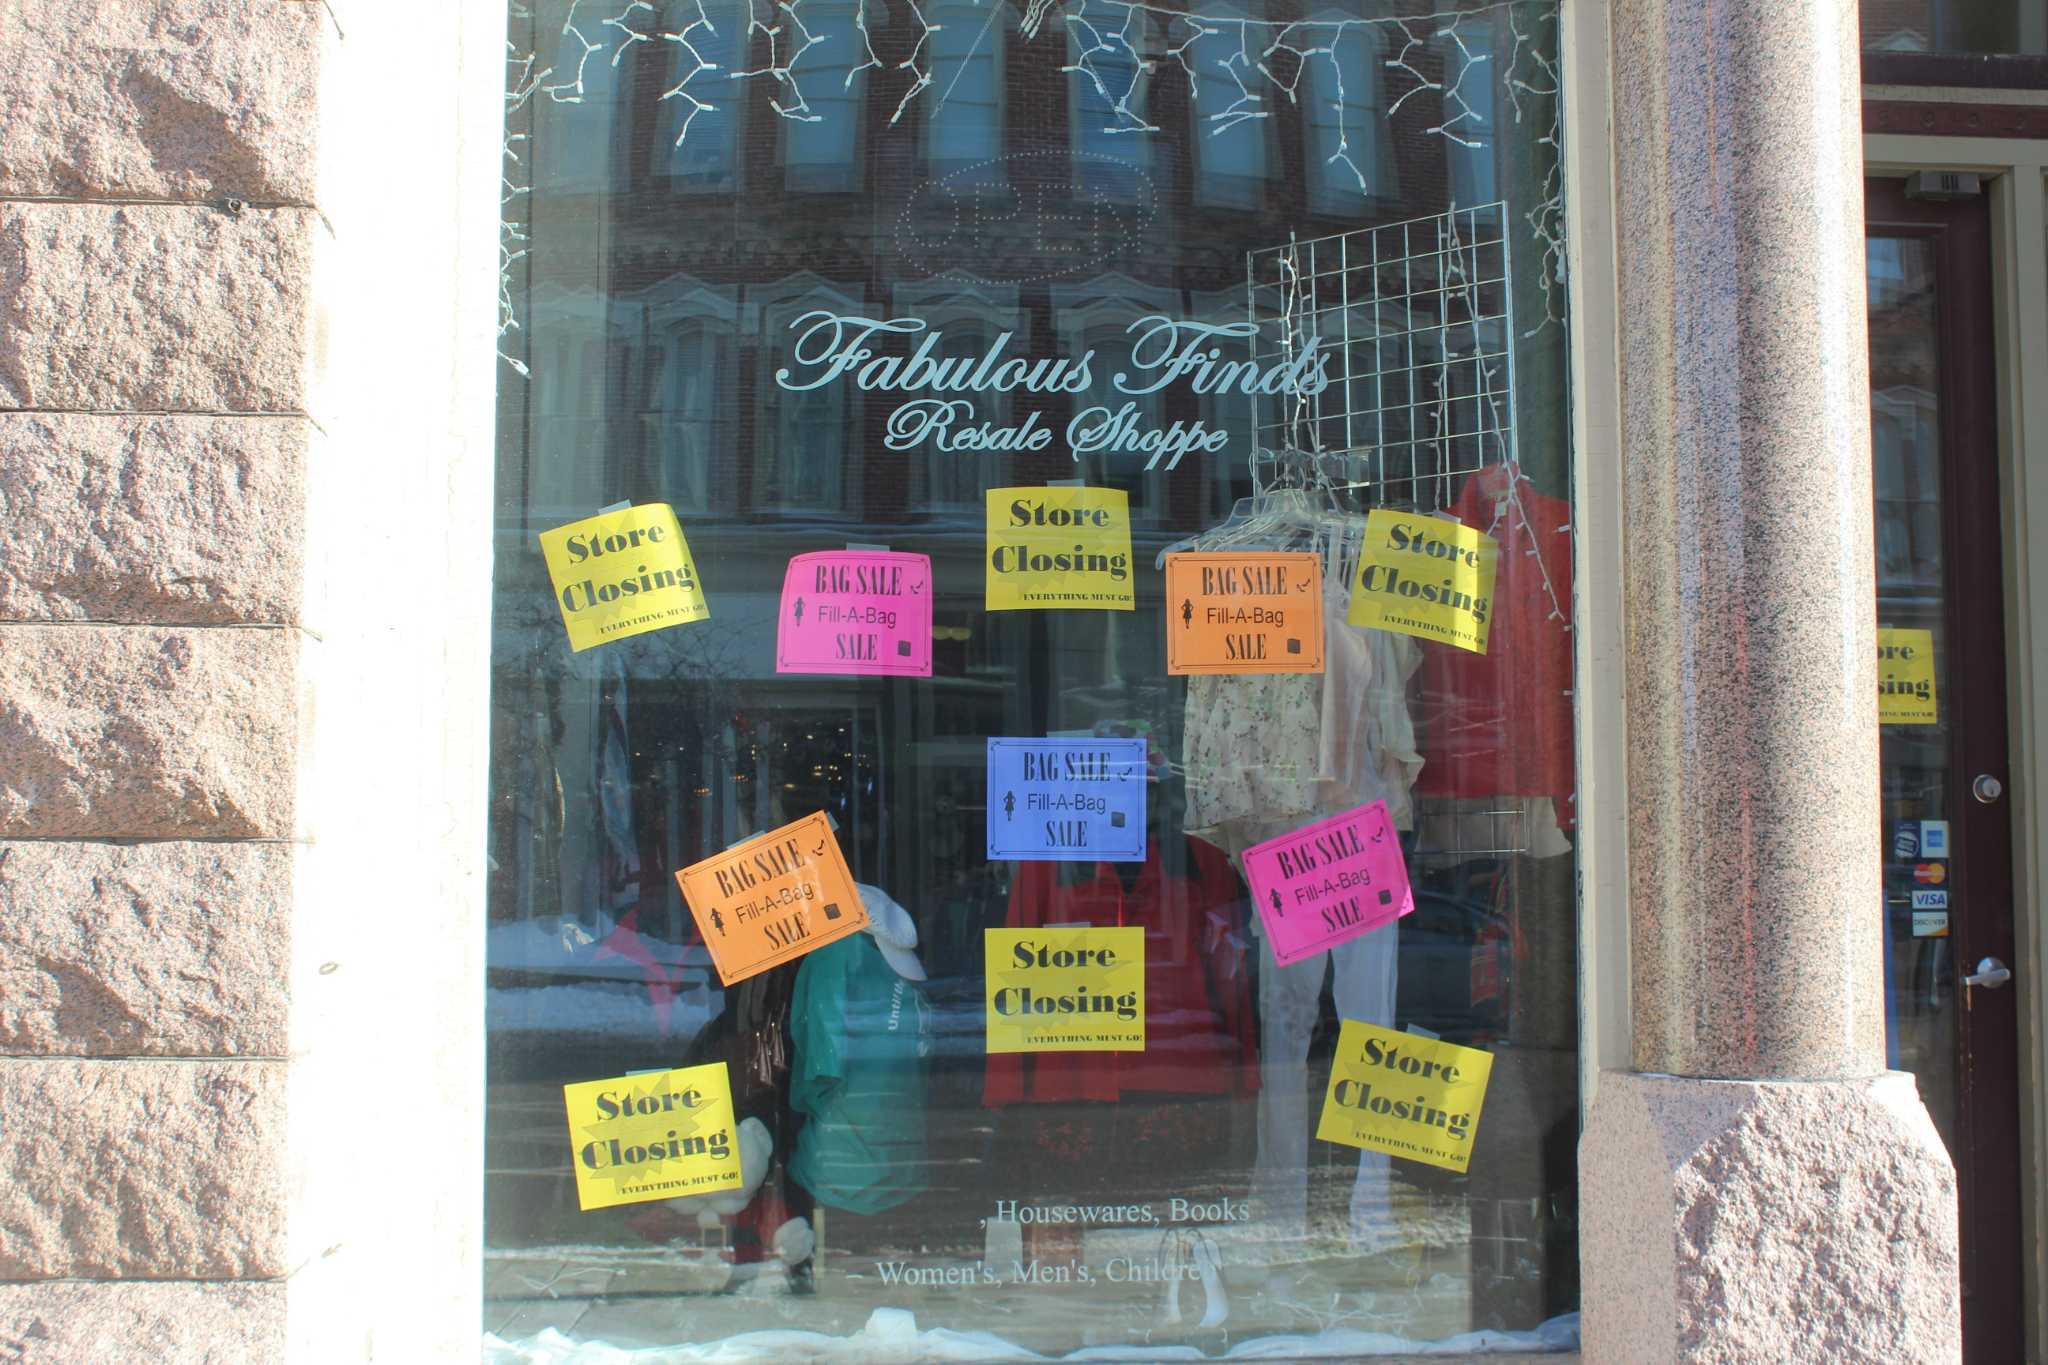 OPEN
Fabulous Finds
Resale Shoppe
Store
Closing
EVERYTHING MUST GO!
BAG SALE
Fill-A-Bag
SALE
Store
Closing
EVERYTHING MUST GO!
BAG SALE
Fill-A-Bag
SALE
Store
Closing
EVERYTHING MUST GO!
ore
sing
HING MUST GO!
BAG SALE
Fill-A-Bag
SALE
BAG SALE
Fill-A-Bag
SALE
BAG SALE
Fill-A-Bag
SALE
MasterCard
VISA
DISCOVER
Store
Closing
EVERYTHING MUST GO!
Store
Closing
EVERYTHING MUST GO!
Store
Closing
EVERYTHING MUST GO!
, Housewares, Books
– Women's, Men's, Children